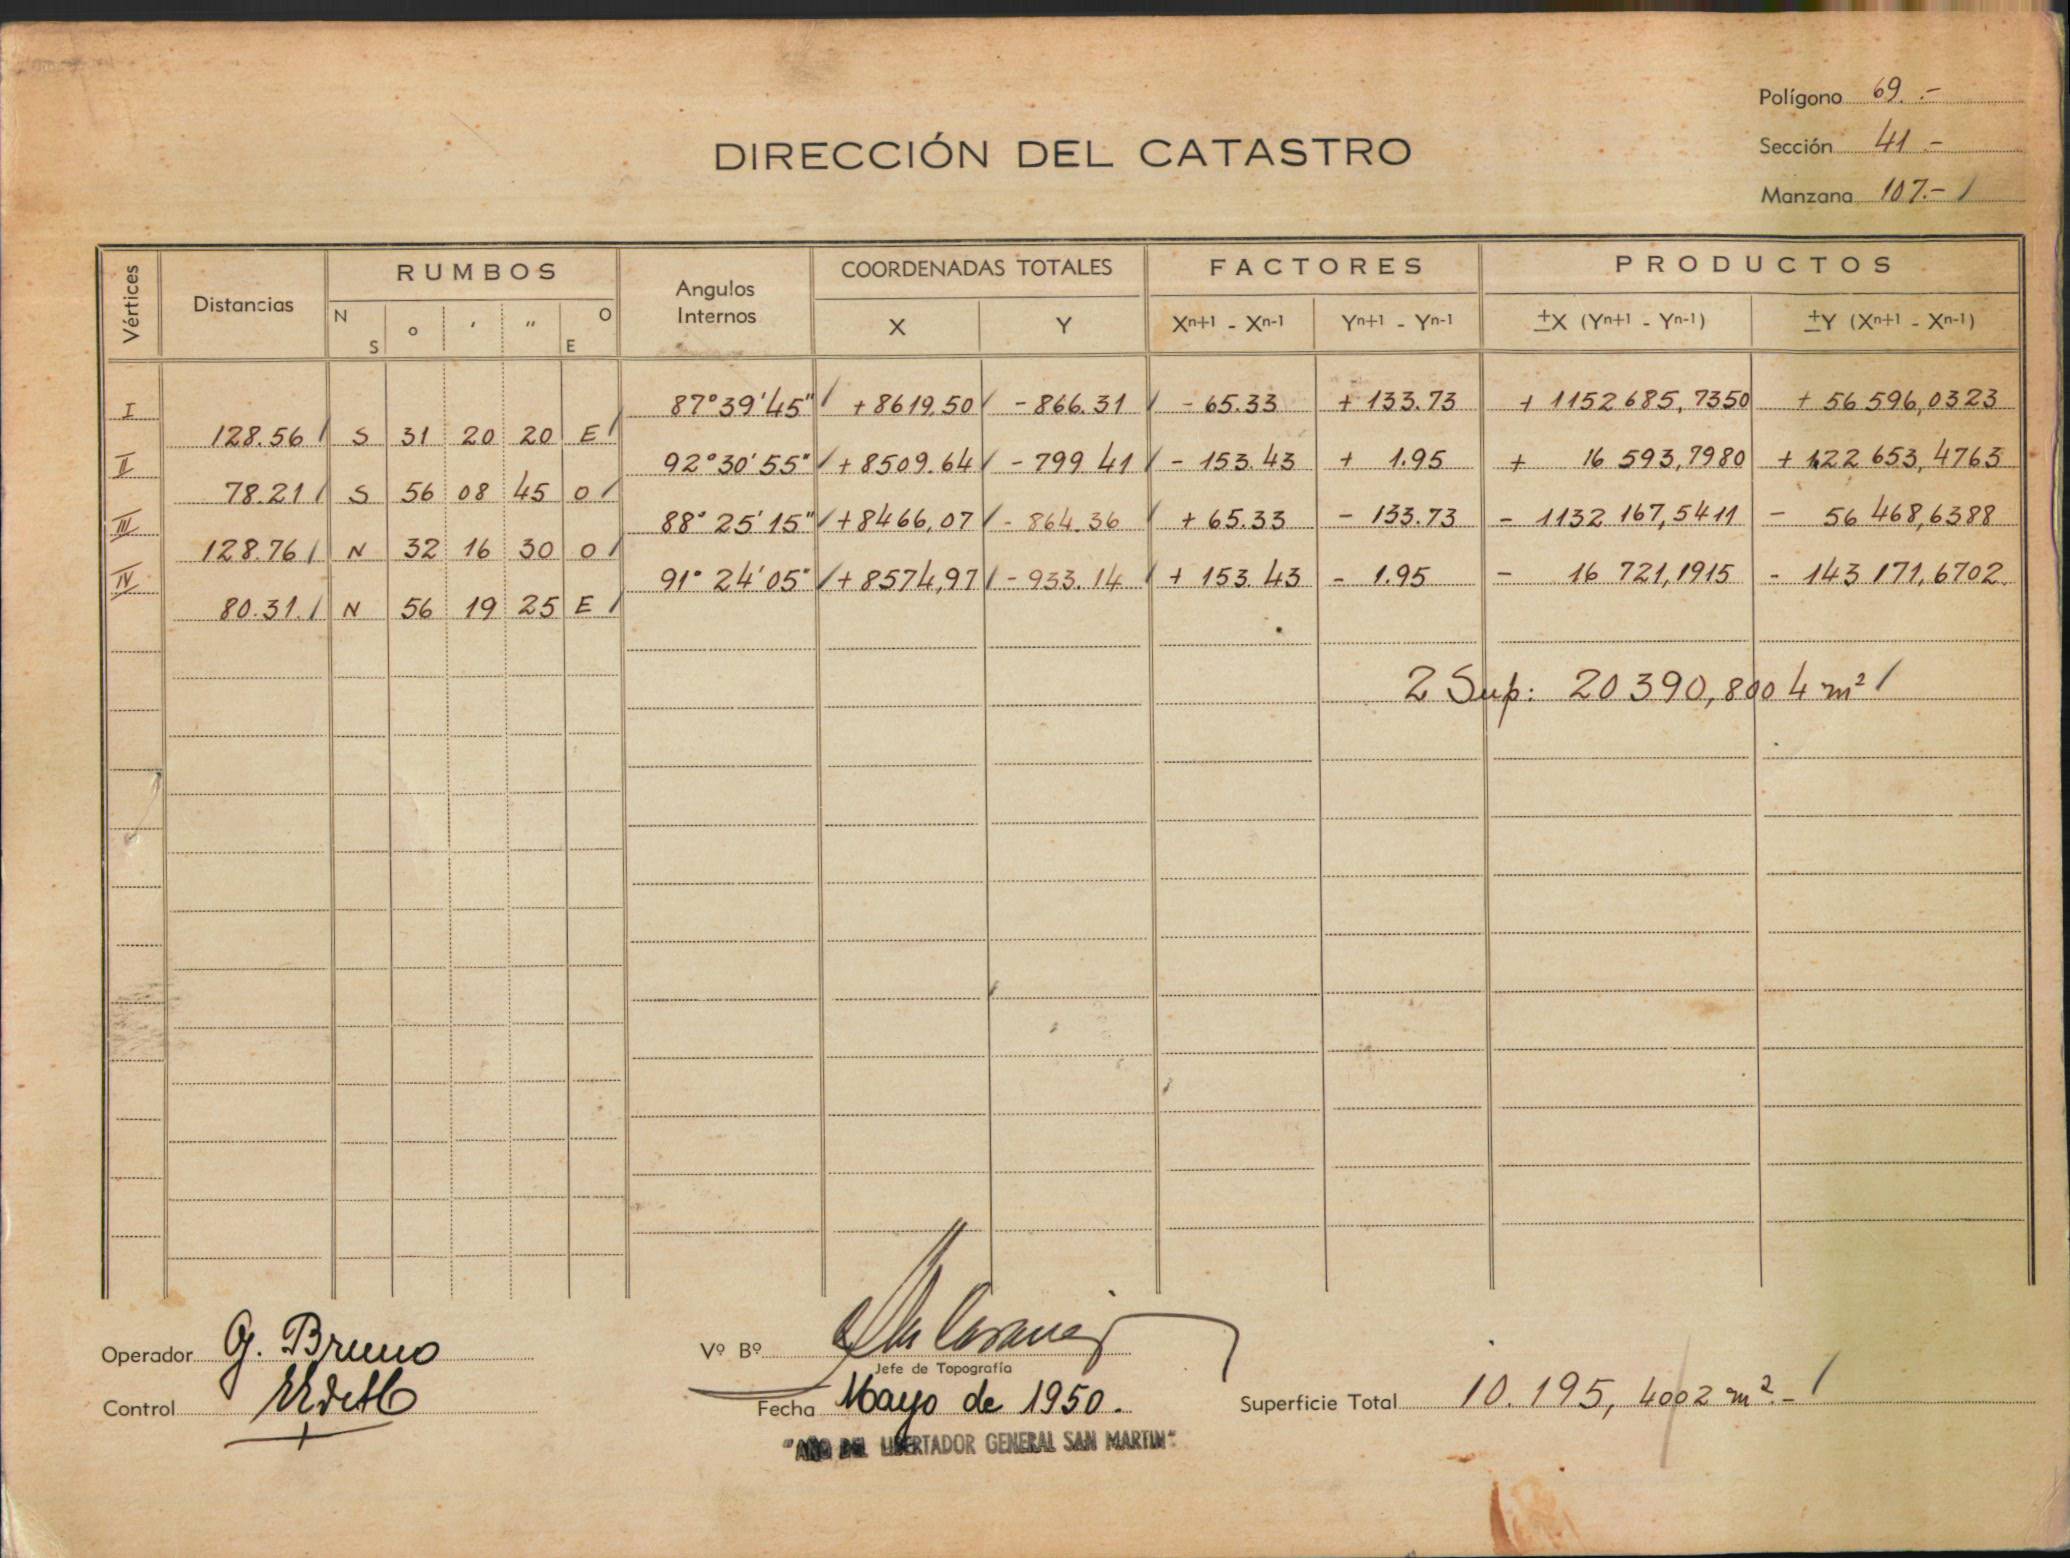 Polígono 69.-
DIRECCIÓN DEL CATASTRO
Sección 41-
Manzana 107.- /
Vértices Distancias RUMBOS Angulos Internos COORDENADAS TOTALES FACTORES PRODUCTOS
N S o ' " O E X Y Xn+1 - Xn-1 Yn+1 - Yn-1 ±X (Yn+1 - Yn-1) ±Y (Xn+1 - Xn-1)
I 87°39'45" / +8619.50 / -866.31 / -65.33 +133.73 + 1152685,7350 + 56 596,0323
128.56 / S 31 20 20 E /
II 92°30'55" / +8509.64 / -799 41 / -153.43 + 1.95 + 16 593,7980 + 122 653,4763
78.21 / S 56 08 45 O /
III 88°25'15" / +8466,07 / -864.36 / +65.33 -133.73 - 1132 167,5411 - 56 468,6388
128.76 / N 32 16 30 O /
IV 91°24'05" / +8574,97 / -933.14 / +153.43 -1.95 - 16 721,1915 - 143 171,6702.
80.31. / N 56 19 25 E /
2 Sup: 20 390,8004 m² /
Operador G. Bruno Vº Bº
Jefe de Topografía
Control Fecha Mayo de 1950. Superficie Total 10.195, 4002 m².- /
"AÑO DEL LIBERTADOR GENERAL SAN MARTIN"